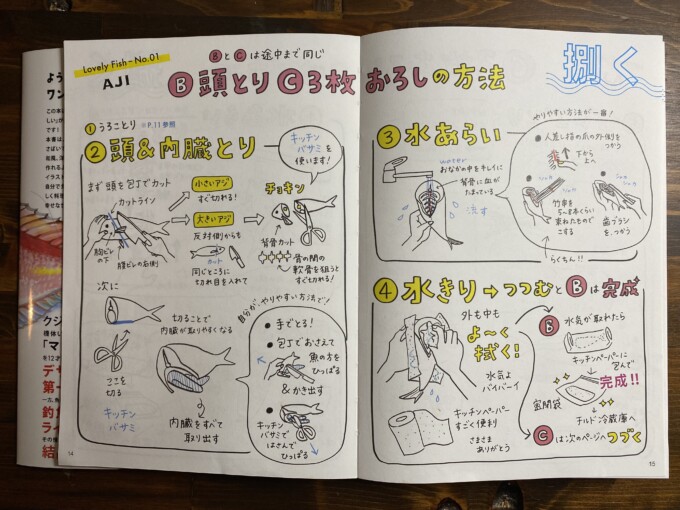 Lovely Fish-No.01
AJI
ⒷとⒸは途中まで同じ
Ⓑ頭とり Ⓒ3枚おろしの方法
捌く
①うろことり ※P.11参照
②頭&内臓とり
キッチン
バサミを
使います!
まず頭を包丁でカット
カットライン
胸ビレ
の下
腹ビレの右側
小さいアジ
すぐ切れる!
大きいアジ
反対側からも
カット
同じところに
切れ目を入れて
チョキン
背骨カット
骨の間の
軟骨を狙うと
すぐ切れる!
次に
切ることで
内臓が取りやすくなる
ここを
切る
キッチン
バサミ
内臓をすべて
取り出す
自分が、やりやすい方法で!
●手でとる!
●包丁でおさえて
魚の方を
ひっぱる
&かき出す
キッチン
バサミで
はさんで
ひっぱる
14
③水あらい
water
おなかの中をキレイに
背骨に血が
たまっている
流す
やりやすい方法が一番!
●人差し指の爪の外側を
つかう
下から
上へ
竹串を
束ねたもので
こする
歯ブラシ
を、つかう
らくちん!!
④水きり→つつむとⒷは完成
外も中も
よ〜く
拭く!
水気よ
バイバーイ
キッチンペーパー
すごく便利
さまさま
ありがとう
Ⓑ
水気が取れたら
キッチンペーパーに
包んで
完成!!
密閉袋
チルド冷蔵庫へ
Ⓒは次のページへつづく
15